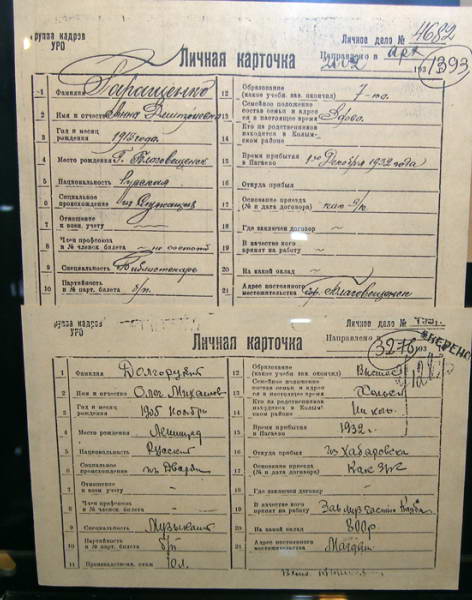 группа кадров
УРО
Личное дело № 4682
Личная карточка
Направлено в арх
193
1393
1 Фамилия Гаращенко
2 Имя и отчество Анна Дмитриевна
3 Год и месяц рождения 1915 года.
4 Место рождения г. Благовещенск
5 Национальность Русская
6 Социальное происхождение из служащих
7 Отношение к воин. учету ~
8 Член профсоюза и № членск. билета – не состоит
9 Специальность Библиотекарь
10 Партийность и № парт. билета б/п.
12 Образование (какое учебн. зав. окончил) 7-ка.
13 Семейное положение состав семьи и адрес ея в настоящее время Вдова.
14 Кто из родственников находится в Колымском районе
15 Время прибытия в Нагаево 1го Декабря 1932 года
16 Откуда прибыл
17 Основание приезда (№ и дата договора) как з/к
18 Где заключен договор ~
19 В качестве кого принят на работу ~
20 На какой оклад ~
21 Адрес постоянного местожительства гор. Благовещенск
группа кадров
УРО
Личное дело №
Личная карточка
Направлено в
193
3276
1 Фамилия Долгорукий
2 Имя и отчество Олег Михайлов
3 Год и месяц рождения 1905 Ноябрь
4 Место рождения Ленинград
5 Национальность Русский
6 Социальное происхождение из Дворян
7 Отношение к воин. учету –
8 Член профсоюза и № членск. билета –
9 Специальность Музыкант
10 Партийность и № парт. билета б/п
11 Производствен. стаж 10 л.
12 Образование (какое учебн. зав. окончил) Высшее
13 Семейное положение состав семьи и адрес ея в настоящее время Холост
14 Кто из родственников находится в Колымском районе Никого
15 Время прибытия в Нагаево 1932 г.
16 Откуда прибыл Из Хабаровска
17 Основание приезда (№ и дата договора) Как з/к
18 Где заключен договор –
19 В качестве кого принят на работу
20 На какой оклад 800р
21 Адрес постоянного местожительства Магадан